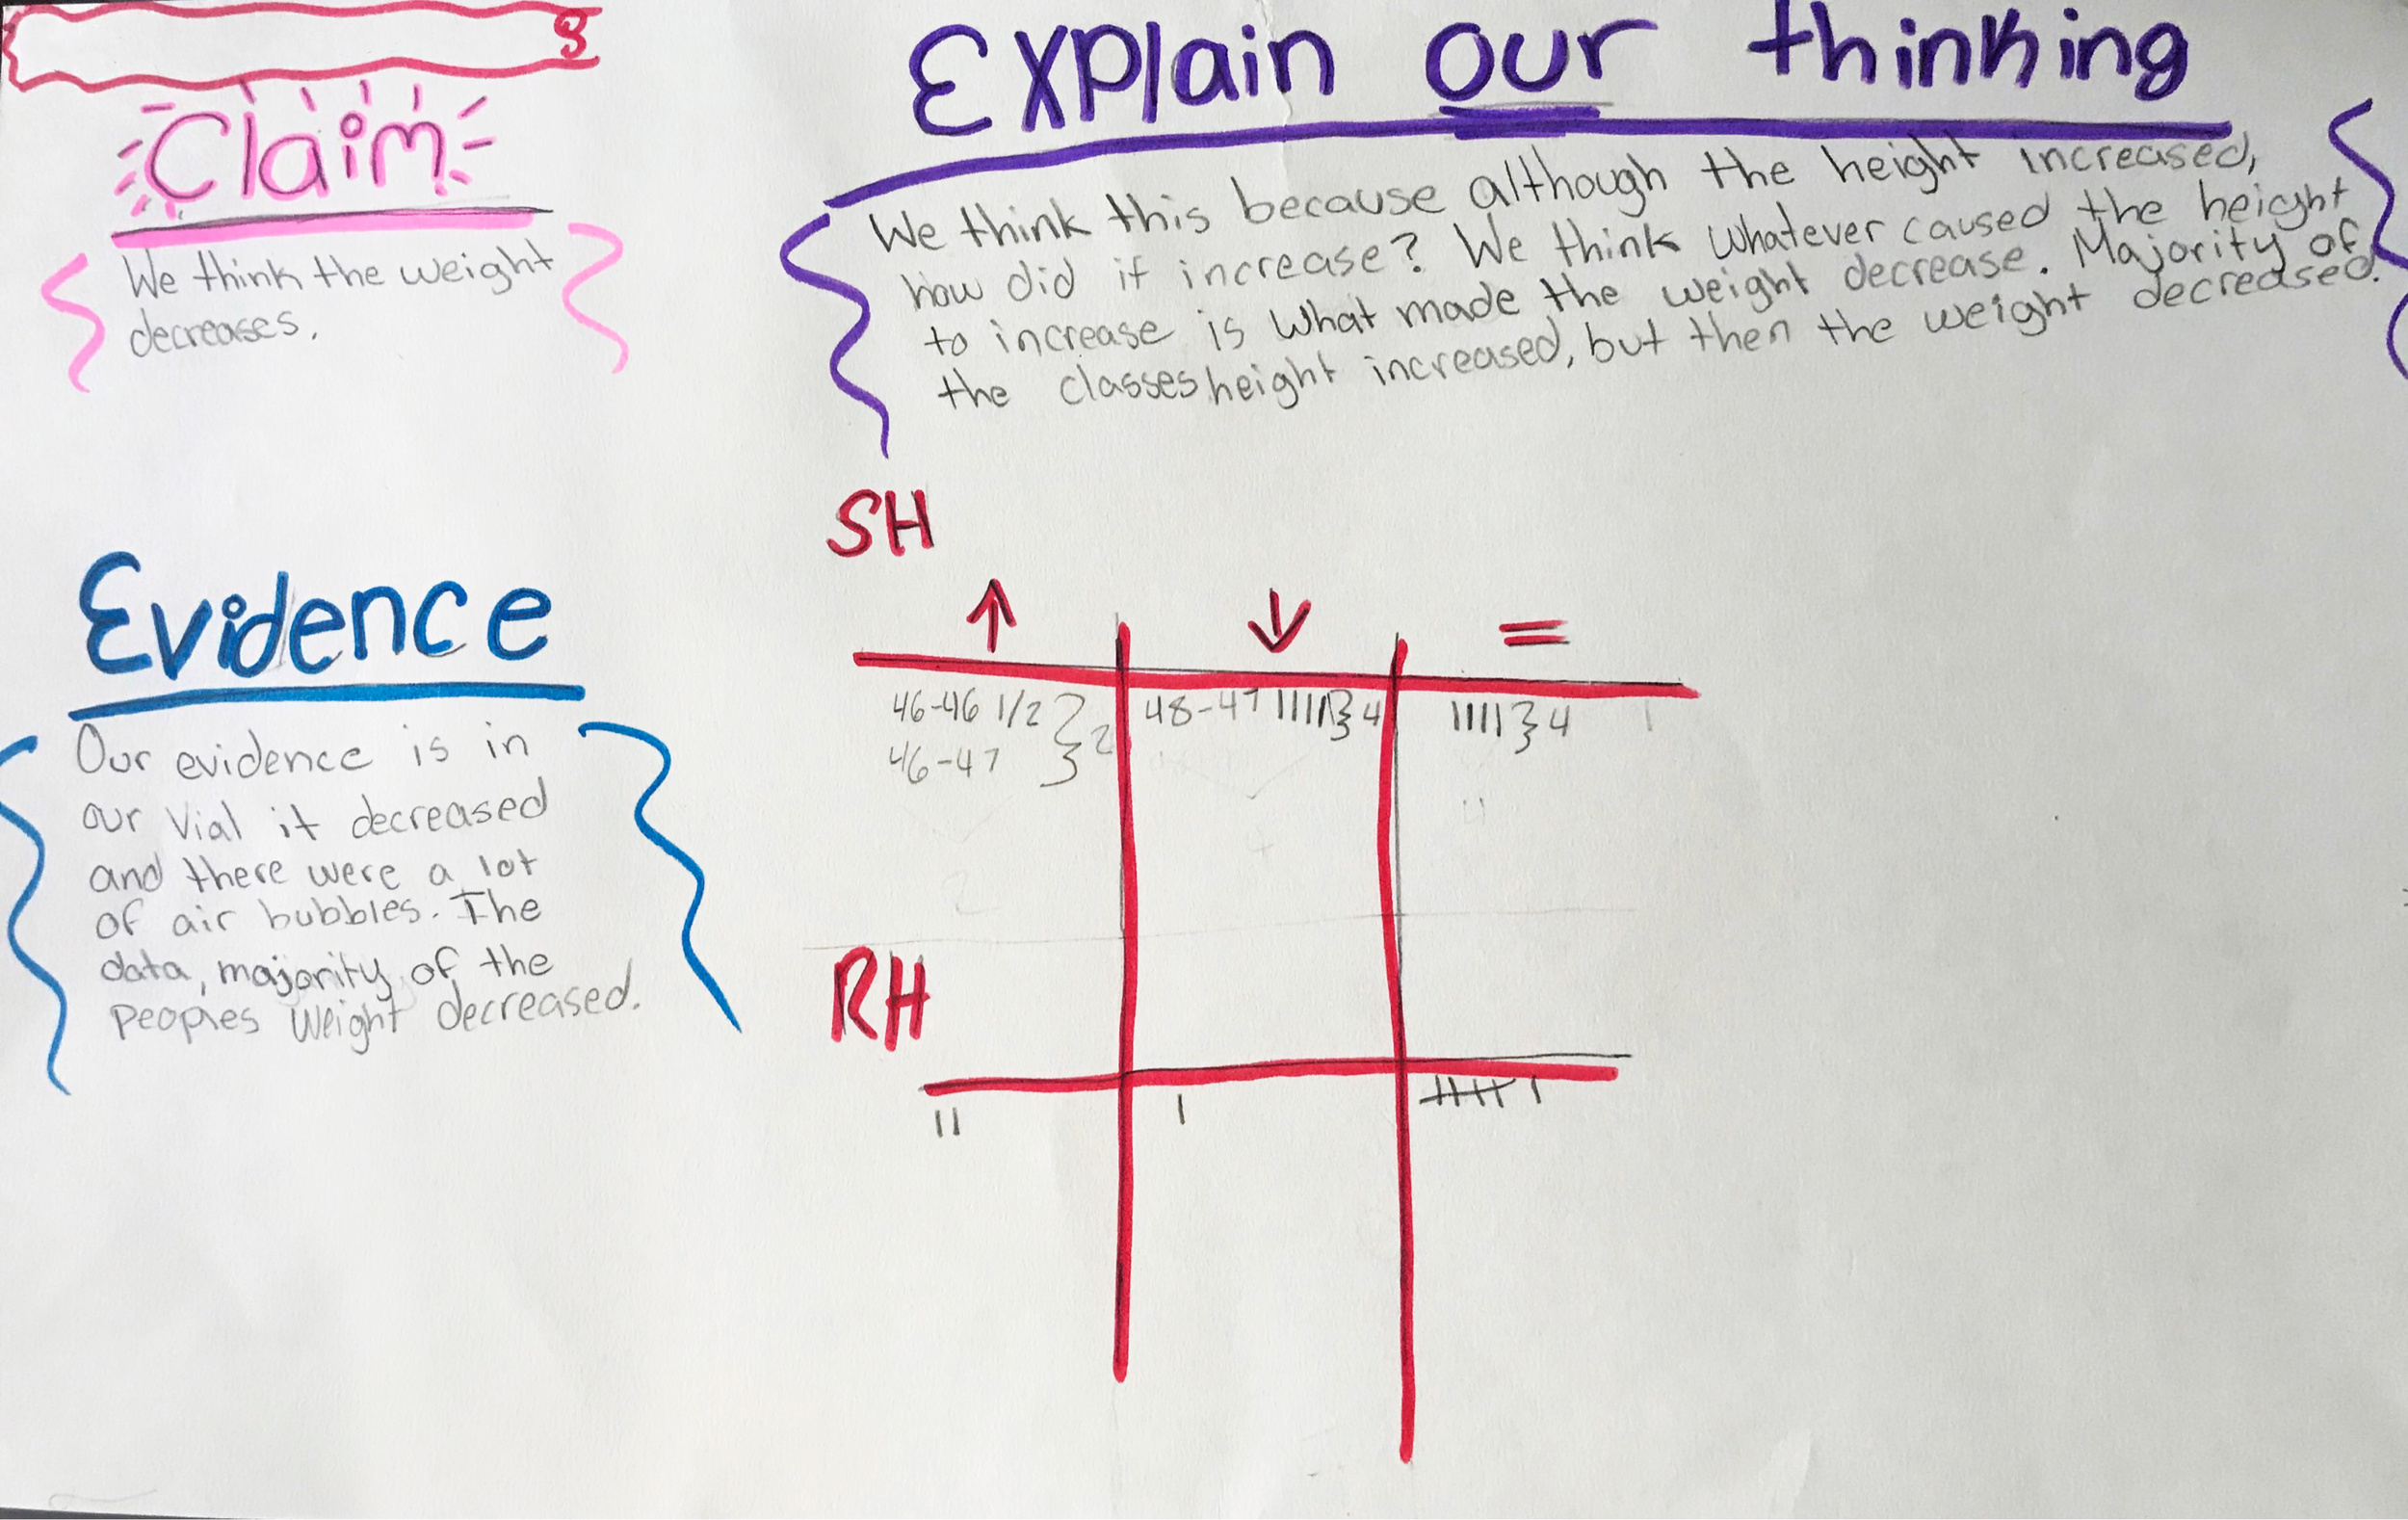 S
Claim
We think the weight
decreases.
Evidence
Our evidence is in
our Vial it decreased
and there were a lot
of air bubbles. The
data, majority of the
peoples Weight decreased.
Explain our thinking
We think this because although the height increased,
how did it increase? We think whatever caused the height
to increase is what made the weight decrease. Majority of
the classes height increased, but then the weight decreased.
SH
↑ ↓ =
46-46 1/2 } 2 48-47 } 4 IIII } 4
46-47
RH
II I IIII I